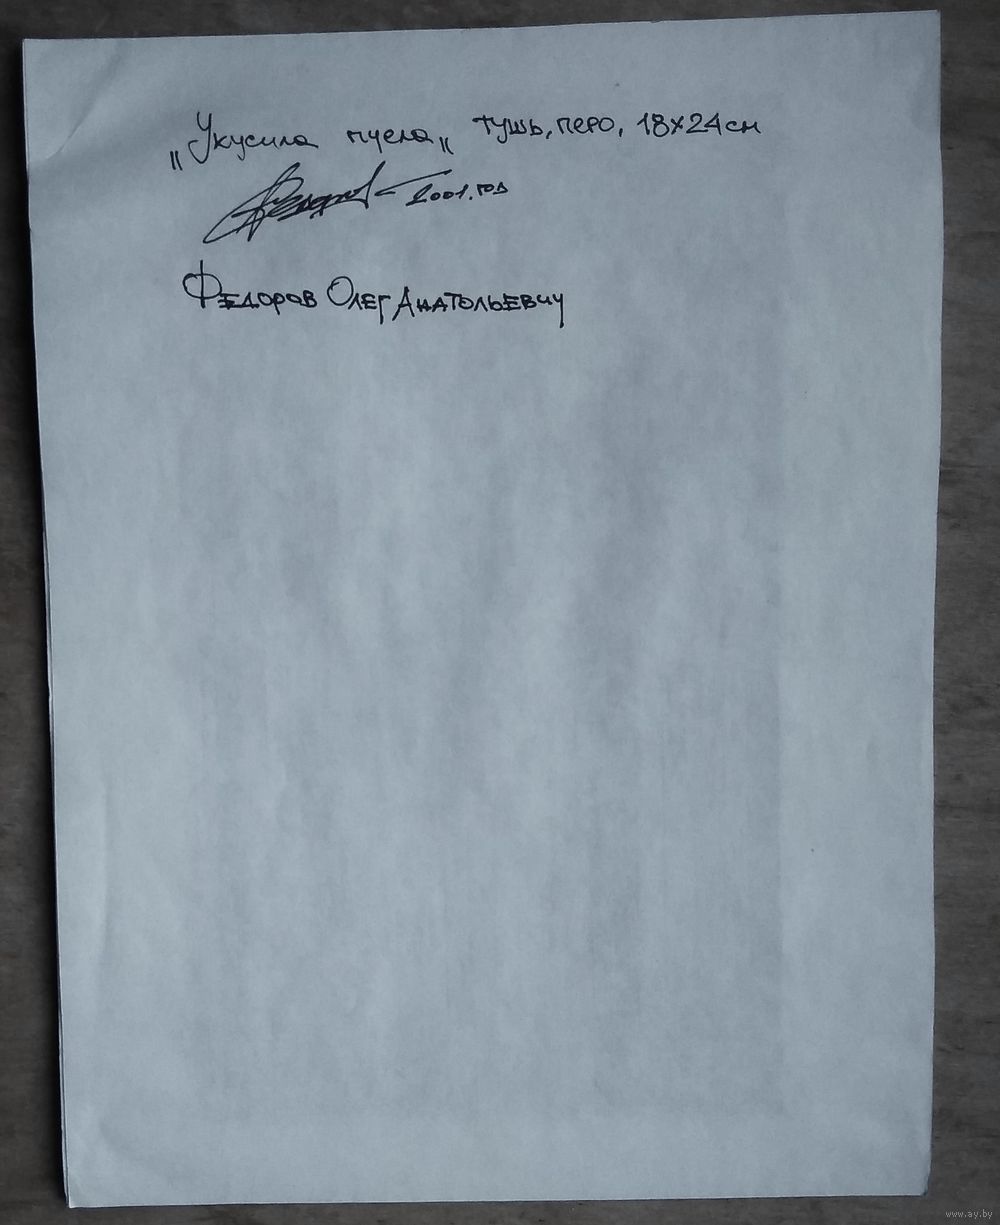 „Укусила пчела„ тушь, перо, 18х24см
Федоров- 2001. год
Федоров Олег Анатольевич
www.ay.by